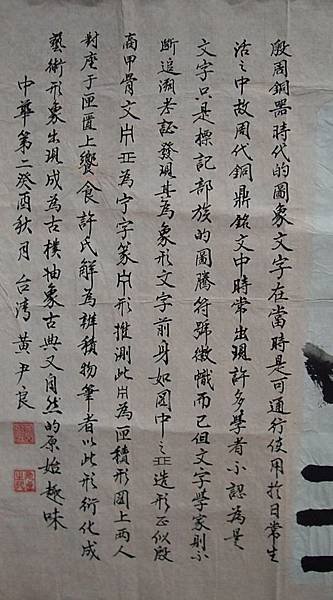 殷周銅器時代的圖象文字在當時是可通行使用於日常生
活之中故周代銅鼎銘文中時常出現許多學者不認為是
文字只是標記部族的圖騰符號徽幟而已但文字學家則不
斷追溯考証發現其為象形文字前身如図中之亞造形正似殷
商甲骨文爿亞為宁字篆爿形推測此爿為匣積形図上兩人
對座于匣置上饗食許氏解為辨積物筆者以此形衍化成
藝術形象出現成為古樸抽象古典又自然的原始趣味
中華第二癸酉秋月台湾黃尹良